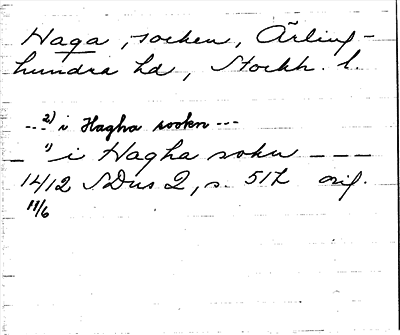 Haga, socken, Ärling-
hundra hd, Stockh. l.
--- 2) i Hagha sookn ---
— 1) i Hagha sokn ---
1412 SDns 2, s. 512 orig.
11/6